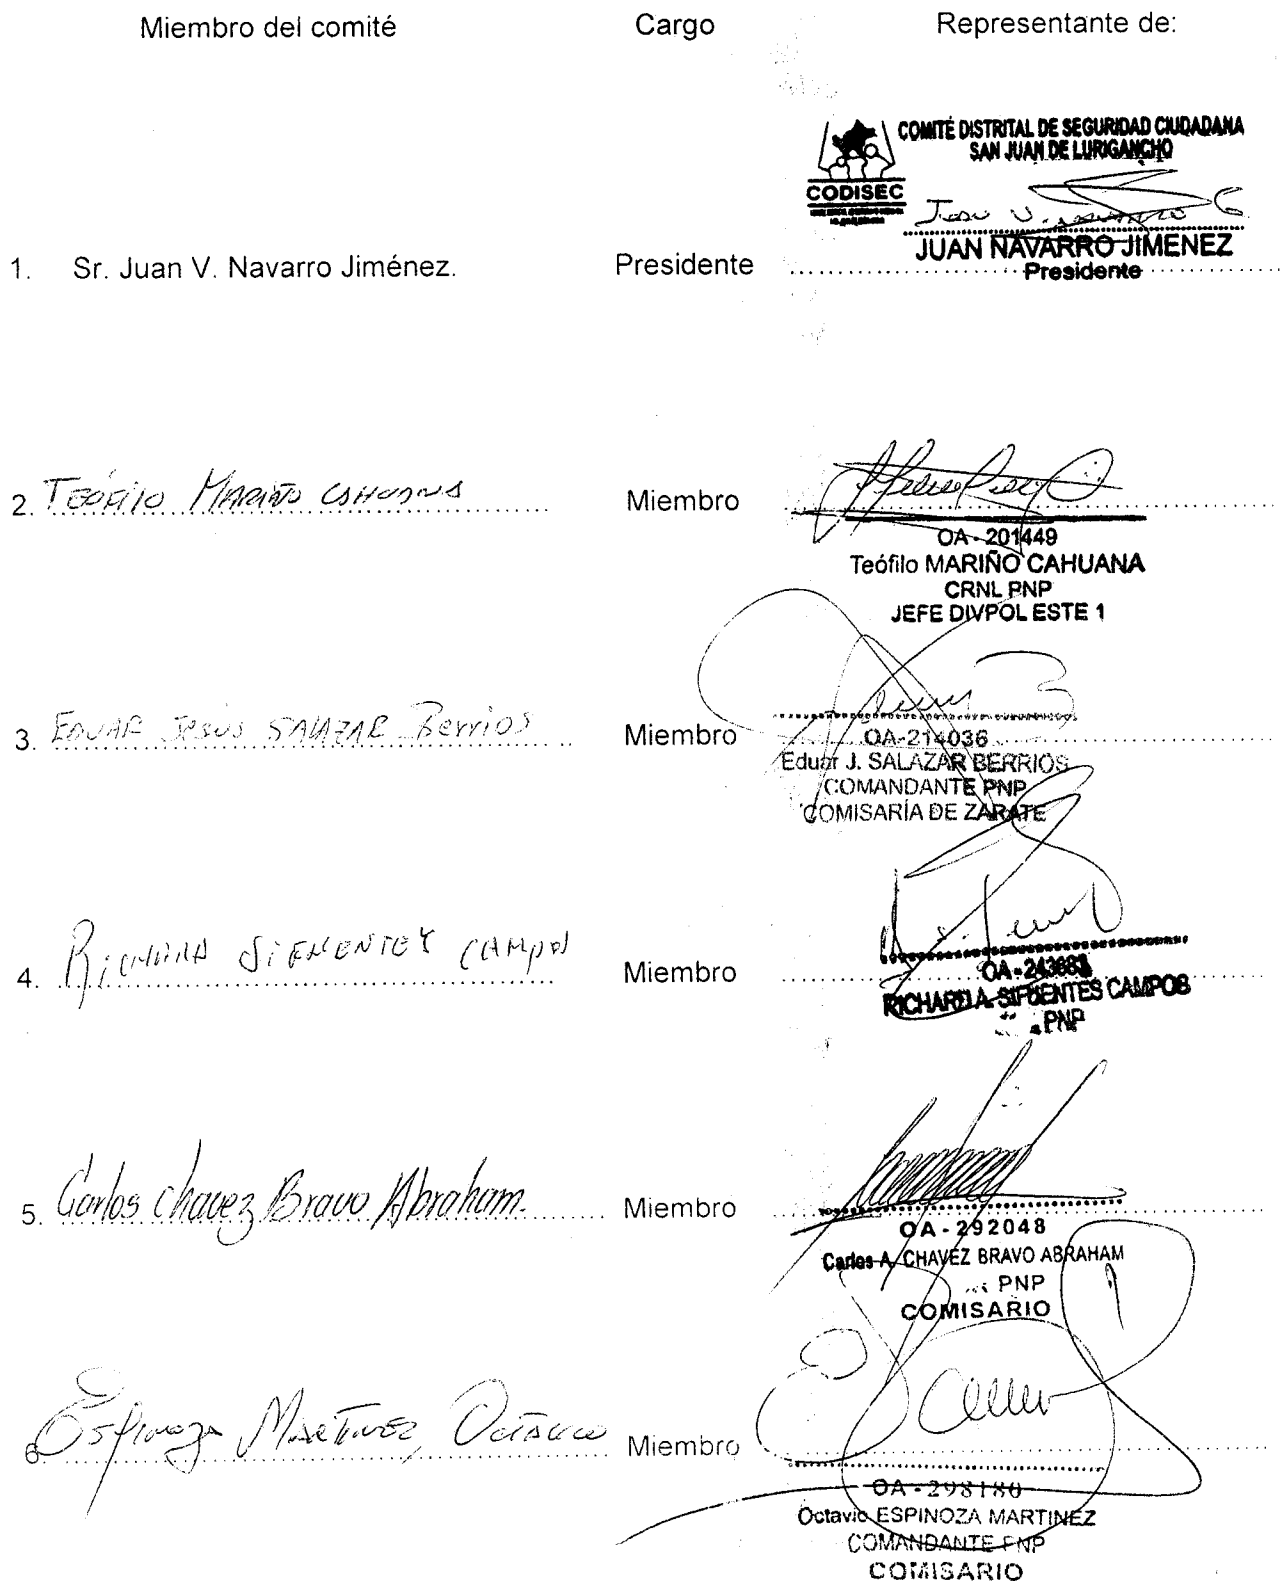 Miembro del comité Cargo Representante de:
COMITÉ DISTRITAL DE SEGURIDAD CIUDADANA
SAN JUAN DE LURIGANCHO
CODISEC
JUAN NAVARRO JIMENEZ
1. Sr. Juan V. Navarro Jiménez. Presidente
Presidente
2. TEÓFILO MARIÑO CAHUANA Miembro
OA-201449
Teófilo MARIÑO CAHUANA
CRNL PNP
JEFE DIVPOL ESTE 1
3. EDUAR JESÚS SALAZAR Berrios Miembro
OA-214036
Eduar J. SALAZAR BERRIOS
COMANDANTE PNP
COMISARÍA DE ZARATE
4. RICHARD SIFUENTES CAMPOS Miembro
RICHARD A. SIFUENTES CAMPOS
PNP
5. Carlos Chavez Bravo Abraham. Miembro
OA-292048
Carlos A. CHAVEZ BRAVO ABRAHAM
PNP
COMISARIO
6. Espinoza Martinez, Octavio Miembro
OA-298180
Octavio ESPINOZA MARTINEZ
COMANDANTE PNP
COMISARIO